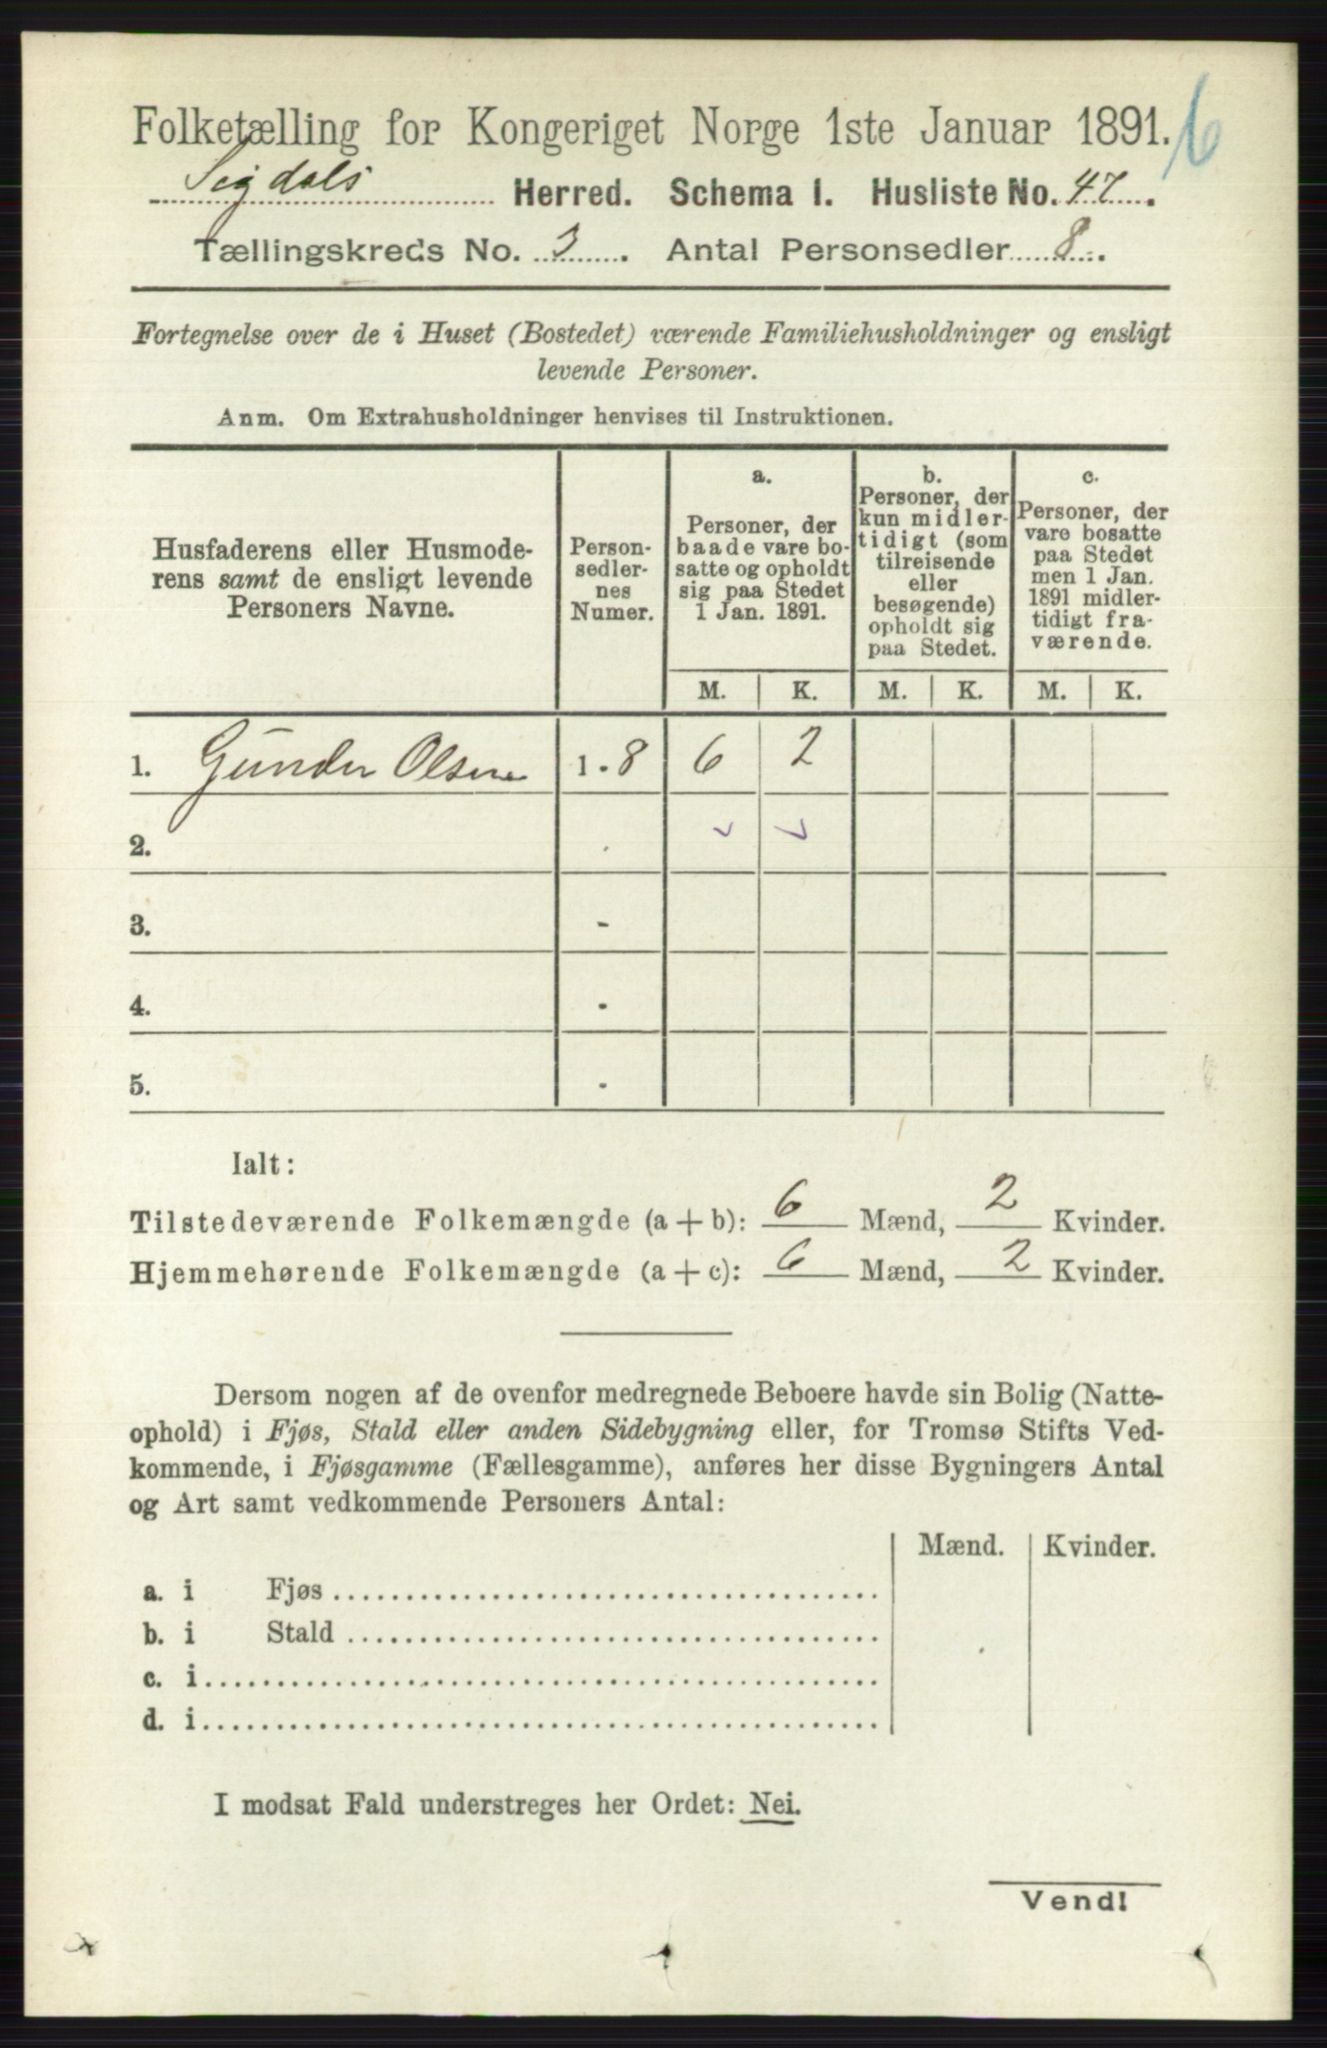 Folketælling for Kongeriget Norge 1ste Januar 1891. 6
Sigdals Herred. Schema I. Husliste No. 47.
Tællingskreds No. 3. Antal Personsedler 8.
Fortegnelse over de i Huset (Bostedet) værende Familiehusholdninger og ensligt
levende Personer.
Anm. Om Extrahusholdninger henvises til Instruktionen.
Husfaderens eller Husmode-
rens samt de ensligt levende
Personers Navne.
Person-
sedler-
nes
Numer.
a.
Personer, der
baade vare bo-
satte og opholdt
sig paa Stedet
1 Jan. 1891.
b.
Personer, der
kun midler-
tidigt (som
tilreisende
eller
besøgende)
opholdt sig
paa Stedet.
c.
Personer, der
vare bosatte
paa Stedet
men 1 Jan.
1891 midler-
tidigt fra-
værende.
M. K. M. K. M. K.
1. Gunder Olsen 1 - 8 6 2
2.
3. -
4. -
5. -
Ialt:
Tilstedeværende Folkemængde (a + b): 6 Mænd, 2 Kvinder.
Hjemmehørende Folkemængde (a + c): 6 Mænd, 2 Kvinder.
Dersom nogen af de ovenfor medregnede Beboere havde sin Bolig (Natte-
ophold) i Fjøs, Stald eller anden Sidebygning eller, for Tromsø Stifts Ved-
kommende, i Fjøsgamme (Fællesgamme), anføres her disse Bygningers Antal
og Art samt vedkommende Personers Antal:
Mænd. Kvinder.
a. i Fjøs
b. i Stald
c. i
d. i
I modsat Fald understreges her Ordet: Nei.
Vend!